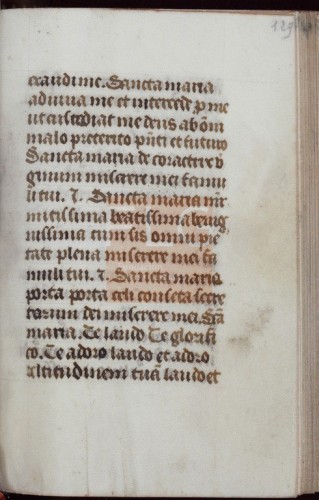 129
exaudi me. Sancta maria
adiuua me et intercede ꝓ me
ut custodiat me deus ab om̄
malo preterito p̄n̄ti et futuro
Sancta maria de
ginum miserere mei famu
li tui. ⁊. Sancta maria
mitissima beatissima benig
nissima cum sis omni pie
tate plena miserere mei fa
muli tui. ⁊. Sancta maria
porta porta celi conseta secre
torium dei miserere mei. Sc̄a
maria. Te laudo Te glorifi
co. Te adoro laudo et adoro
altitudinem tuā laudo et